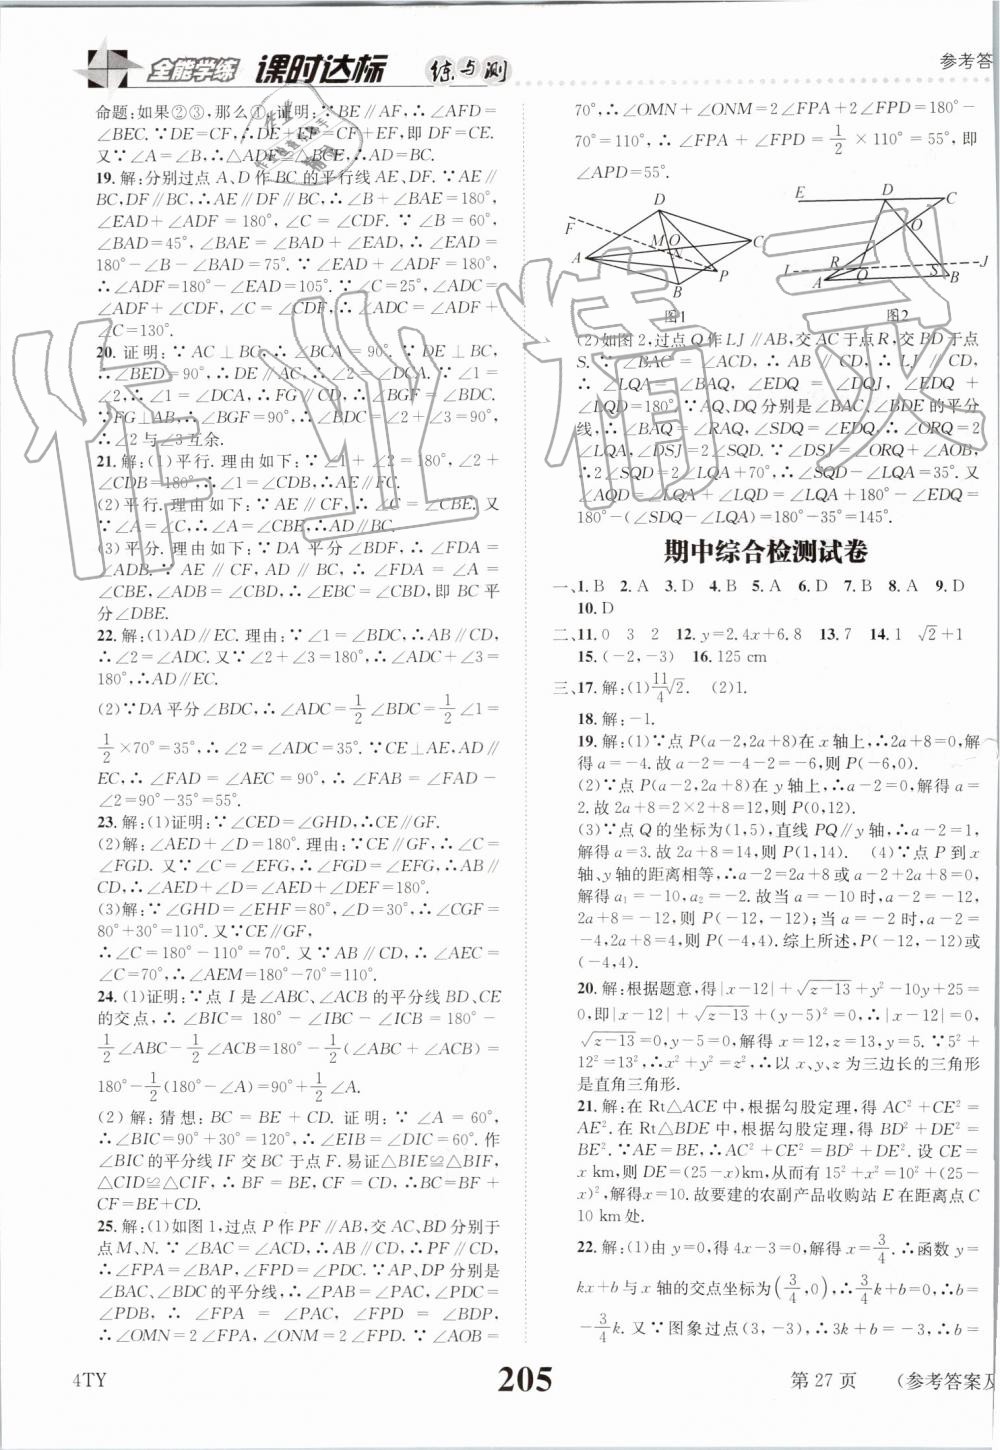 全能学练 课时达标 练与测
参考答
命题:如果②③,那么①;证明:∵BE∥AF,∴∠AFD=
∠BEC.∵DE=CF,∴DE+EF=CF+EF,即DF=CE.
又∵∠A=∠B,∴△ADF≌△BCE,∴AD=BC.
19.解:分别过点A、D作BC的平行线AE、DF.∵AE∥
BC,DF∥BC,∴AE∥DF∥BC,∴∠B+∠BAE=180°,
∠EAD+∠ADF=180°,∠C=∠CDF.∵∠B=60°,
∠BAD=45°,∠BAE=∠BAD+∠EAD,∴∠EAD=
180°-∠B-∠BAD=75°.∵∠EAD+∠ADF=180°,
∴∠ADF=180°-∠EAD=105°.∵∠C=25°,∠ADC=
∠ADF+∠CDF,∠C=∠CDF,∴∠ADC=∠ADF+
∠C=130°.
20.证明:∵AC⊥BC,∴∠BCA=90°.∵DE⊥BC,
∴∠BED=90°.∴∠BCA=∠BED,∴DE∥CA.∵∠1=
∠2,∴∠1=∠DCA,∴FG∥CD,∴∠BGF=∠BDC.
∵FG⊥AB,∴∠BGF=90°,∴∠BDC=∠2+∠3=90°,
∴∠2与∠3互余.
21.解:(1)平行.理由如下:∵∠1+∠2=180°,∠2+
∠CDB=180°,∴∠1=∠CDB,∴AE∥FC.
(2)平行.理由如下:∵AE∥CF,∴∠C=∠CBE.又
∵∠A=∠C,∴∠A=∠CBE,∴AD∥BC.
(3)平分.理由如下:∵DA平分∠BDF,∴∠FDA=
∠ADB.∵AE∥CF,AD∥BC,∴∠FDA=∠A=
∠CBE,∠ADB=∠CBD,∴∠EBC=∠CBD,即BC平
分∠DBE.
22.解:(1)AD∥EC.理由:∵∠1=∠BDC,∴AB∥CD,
∴∠2=∠ADC.又∵∠2+∠3=180°,∴∠ADC+∠3=
180°,∴AD∥EC.
(2)∵DA平分∠BDC,∴∠ADC=1/2∠BDC=1/2∠1=
1/2×70°=35°,∴∠2=∠ADC=35°.∵CE⊥AE,AD∥
EC,∴∠FAD=∠AEC=90°,∴∠FAB=∠FAD-
∠2=90°-35°=55°.
23.解:(1)证明:∵∠CED=∠GHD,∴CE∥GF.
(2)解:∠AED+∠D=180°.理由:∵CE∥GF,∴∠C=
∠FGD.又∵∠C=∠EFG,∴∠FGD=∠EFG,∴AB∥
CD,∴∠AED+∠D=∠AED+∠DEF=180°.
(3)解:∵∠GHD=∠EHF=80°,∠D=30°,∴∠CGF=
80°+30°=110°.又∵CE∥GF,
∴∠C=180°-110°=70°.又∵AB∥CD,∴∠AEC=
∠C=70°,∴∠AEM=180°-70°=110°.
24.(1)证明:∵点I是∠ABC、∠ACB的平分线BD、CE
的交点,∴∠BIC=180°-∠IBC-∠ICB=180°-
1/2∠ABC-1/2∠ACB=180°-1/2(∠ABC+∠ACB)=
180°-1/2(180°-∠A)=90°+1/2∠A.
(2)解:猜想:BC=BE+CD.证明:∵∠A=60°,
∴∠BIC=90°+30°=120°,∴∠EIB=∠DIC=60°.作
∠BIC的平分线IF交BC于点F.易证△BIE≌△BIF,
△CID≌△CIF,∴BF=BE,CF=CD,∴BC=BF+
CF=BE+CD.
25.解:(1)如图1,过点P作PF∥AB,交AC、BD分别于
点M、N.∵∠BAC=∠ACD,∴AB∥CD,∴PF∥CD,
∴∠FPA=∠BAP,∠FPD=∠PDC.∵AP、DP分别是
∠BAC、∠BDC的平分线,∴∠PAB=∠PAC,∠PDC=
∠PDB,∴∠FPA=∠PAC,∠FPD=∠BDP,
∴∠OMN=2∠FPA,∠ONM=2∠FPD.∵∠AOB=
70°,∴∠OMN+∠ONM=2∠FPA+2∠FPD=180°-
70°=110°,∴∠FPA+∠FPD=1/2×110°=55°,即
∠APD=55°.
F D A M O N C P B
图1
E D C O R I Q S J A B
图2
(2)如图2,过点Q作LJ∥AB,交AC于点R,交BD于点
S.∵∠BAC=∠ACD,∴AB∥CD,∴LJ∥CD,
∴∠LQA=∠BAQ,∠EDQ=∠DQJ,∠EDQ+
∠LQD=180°.∵AQ、DQ分别是∠BAC、∠BDE的平分
线,∴∠BAQ=∠RAQ,∠SDQ=∠EDQ,∴∠ORQ=2
∠LQA,∠DSJ=2∠SQD.∵∠DSJ=∠ORQ+∠AOB,
∴2∠SQD=2∠LQA+70°,∴∠SQD-∠LQA=35°.又
∠AQD=∠LQA+∠LQD=∠LQA+180°-∠EDQ=
180°-(∠SDQ-∠LQA)=180°-35°=145°.
期中综合检测试卷
一、1.B 2.A 3.D 4.B 5.A 6.D 7.B 8.A 9.D
10.D
二、11.0 3 2 12.y=2.4x+6.8 13.7 14.1 √2+1
15.(-2,-3) 16.125 cm
三、17.解:(1)11/4√2. (2)1.
18.解:-1.
19.解:(1)∵点P(a-2,2a+8)在x轴上,∴2a+8=0,解
得a=-4.故a-2=-4-2=-6,则P(-6,0).
(2)∵点P(a-2,2a+8)在y轴上,∴a-2=0,解得a=
2.故2a+8=2×2+8=12,则P(0,12).
(3)∵点Q的坐标为(1,5),直线PQ∥y轴,∴a-2=1,
解得a=3.故2a+8=14,则P(1,14). (4)∵点P到x
轴、y轴的距离相等,∴a-2=2a+8或a-2+2a+8=0,
解得a₁=-10,a₂=-2.故当a=-10时,a-2=-12,
2a+8=-12,则P(-12,-12);当a=-2时,a-2=
-4,2a+8=4,则P(-4,4).综上所述,P(-12,-12)或
(-4,4).
20.解:根据题意,得|x-12|+√z-13+y²-10y+25=
0,即|x-12|+√z-13+(y-5)²=0,∴|x-12|=0,
√z-13=0,(y-5)²=0,解得x=12,z=13,y=5.∵5²+
12²=13²,∴x²+y²=z²,∴以x,y,z为三边长的三角形
是直角三角形.
21.解:在Rt△ACE中,根据勾股定理,得AC²+CE²=
AE².在Rt△BDE中,根据勾股定理,得BD²+DE²=
BE².∵AE=BE,∴AC²+CE²=BD²+DE².设CE=
x km,则DE=(25-x)km,从而有15²+x²=10²+(25-
x)²,解得x=10.故要建的农副产品收购站E在距离点C
10 km处.
22.解:(1)由y=0,得4x-3=0,解得x=3/4.∴函数y=
kx+b与x轴的交点坐标为(3/4,0),∴3/4k+b=0,∴b=
-3/4k.又∵图象过点(3,-3),∴3k+b=-3,∴b=
4TY
205
第27页 (参考答案及
作业精灵